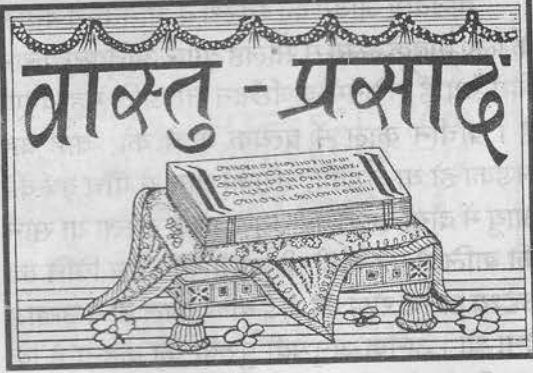 वास्तु - प्रसाद